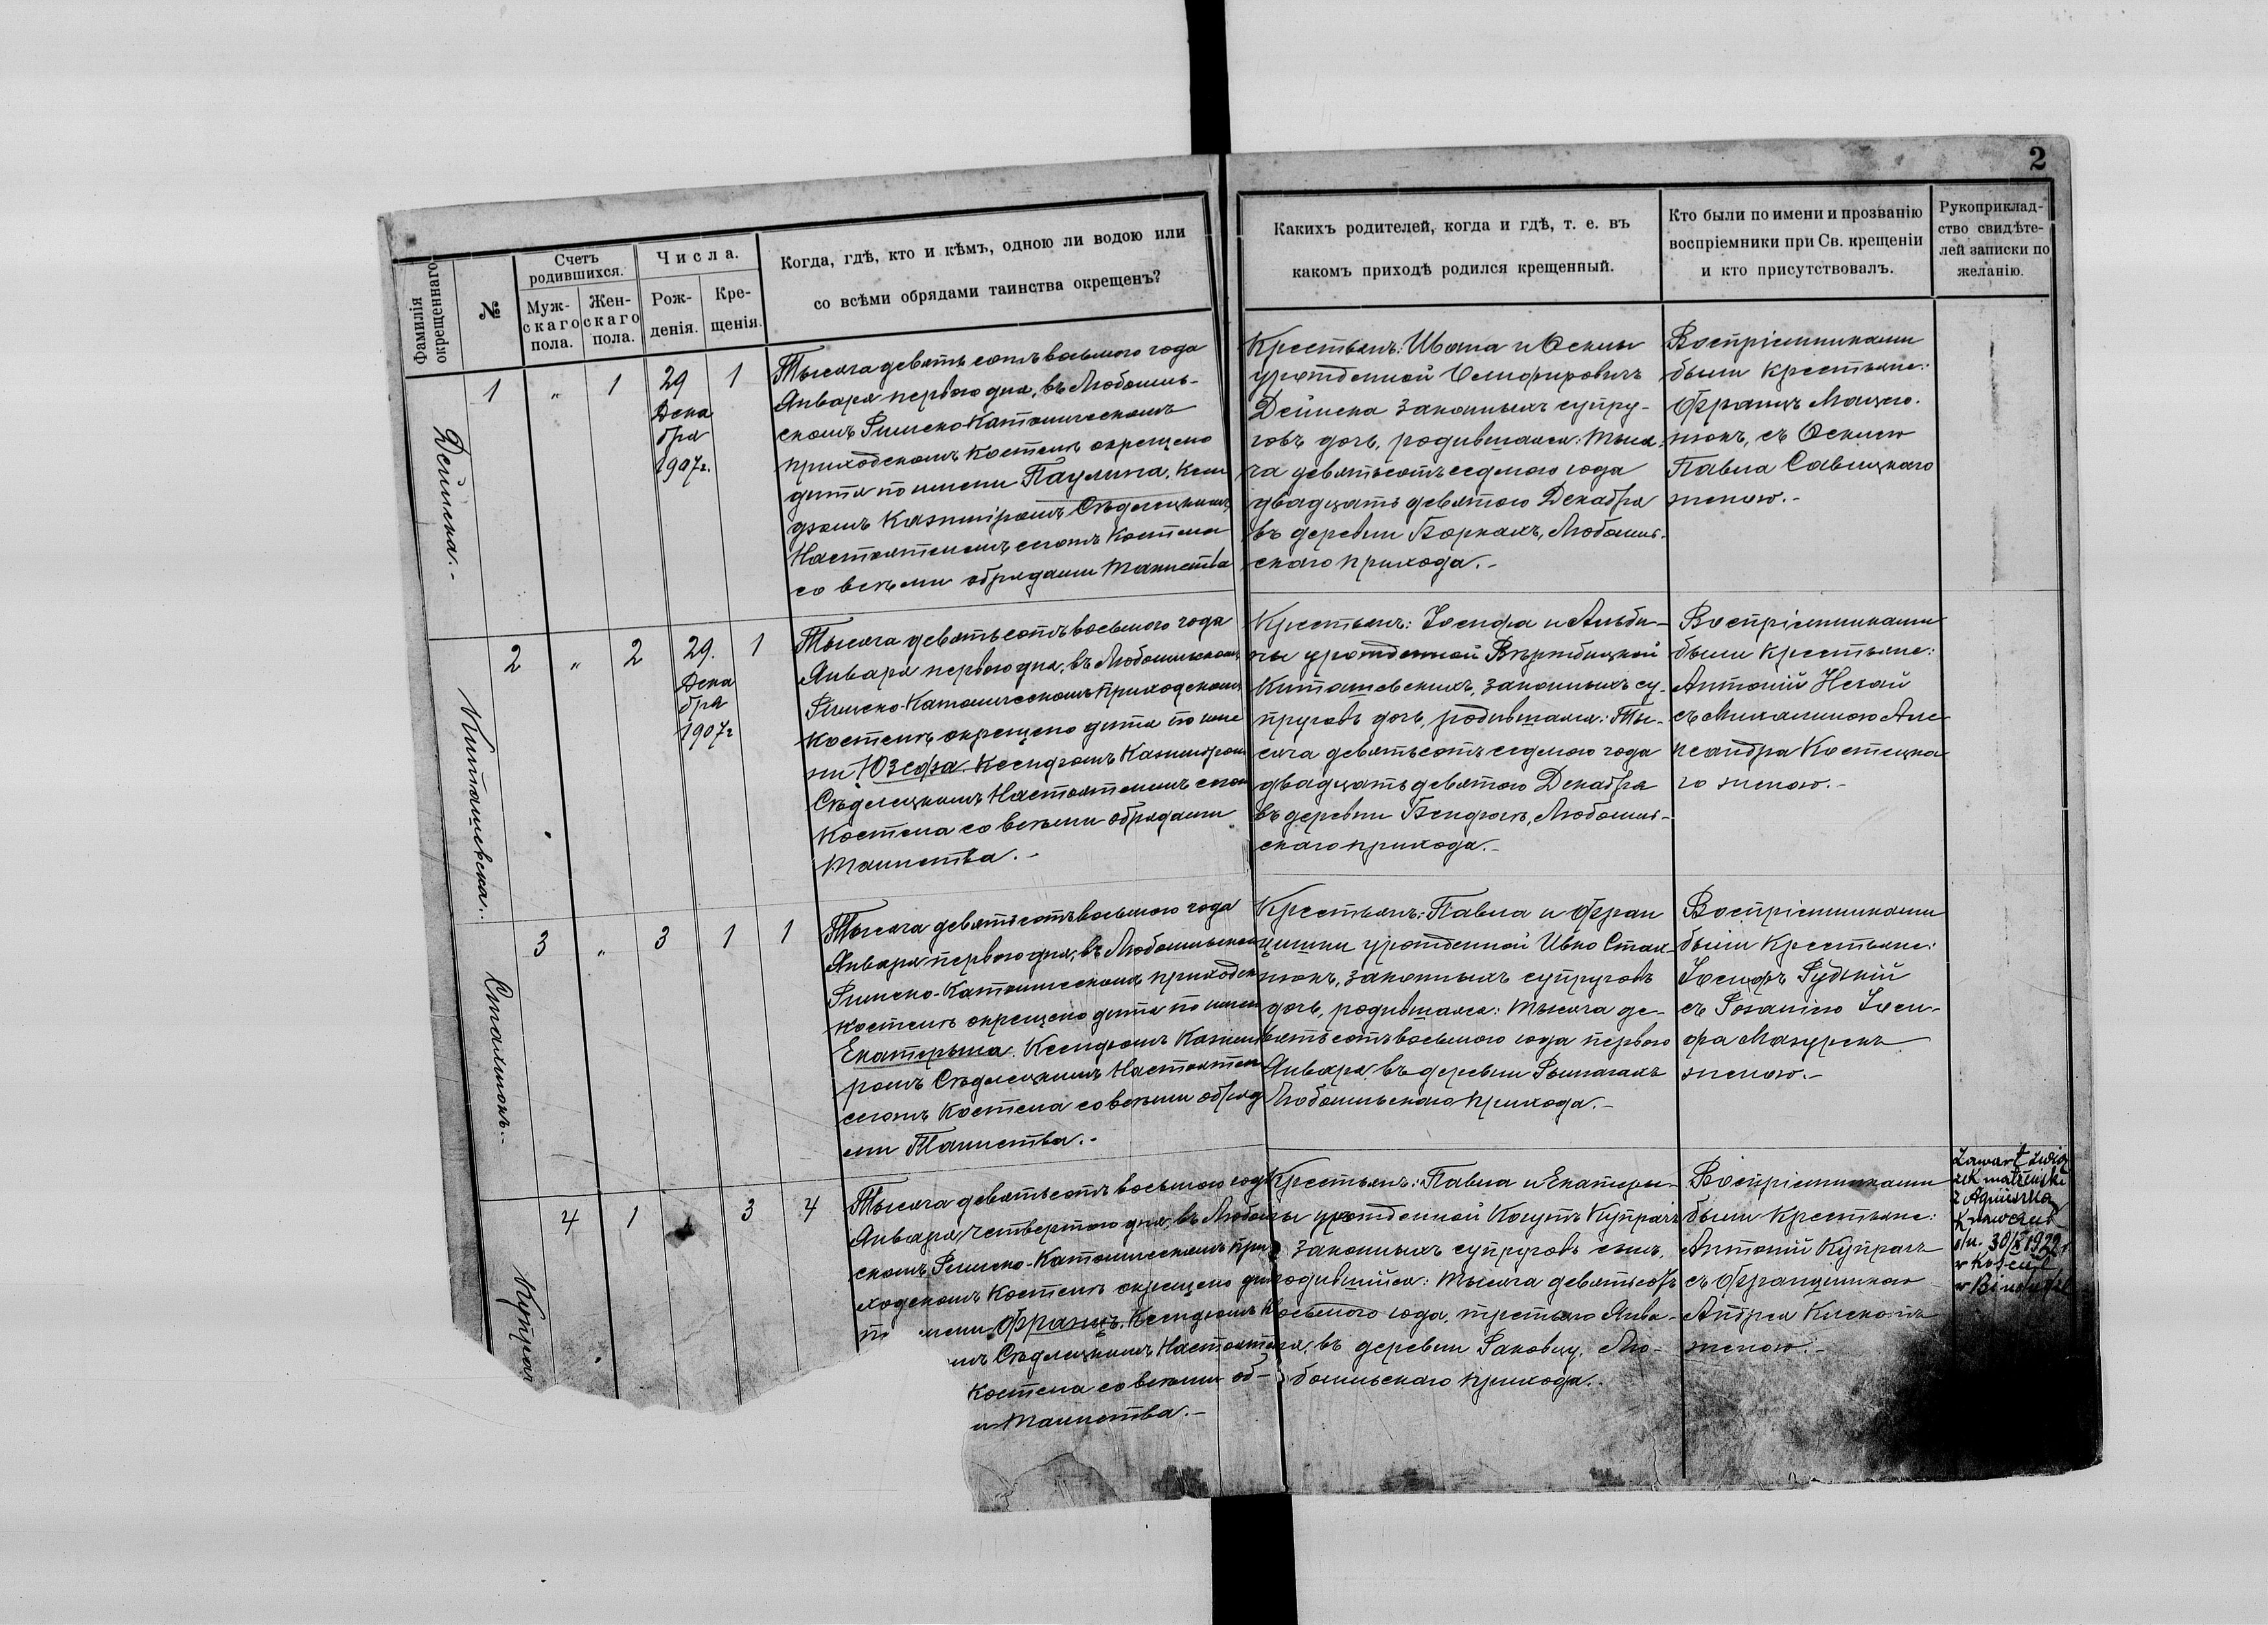 2
Фамилія
окрещеннаго
№
Счетъ
родившихся.
Муж-
скаго
пола.
Жен-
скаго
пола.
Числа.
Рож-
денія.
Кре-
щенія.
Когда, гдѣ, кто и кѣмъ, одною ли водою или
со всѣми обрядами таинства окрещенъ?
Какихъ родителей, когда и гдѣ, т. е. въ
какомъ приходѣ родился крещенный.
Кто были по имени и прозванію
воспріемники при Св. крещеніи
и кто присутствовалъ.
Рукоприклад-
ство свидѣте-
лей записки по
желанію.
Дейнека.-
1
"
1
29
Дека
бря
1907г.
1
Тысяча девятьсотъ восьмого года
Января первого дня, въ Любомль-
скомъ Римско-Католическомъ
приходскомъ костелѣ окрещено
дитя по имени Паулина, Ксен
дзомъ Казиміромъ Сѣдлецкимъ,
Настоятелемъ сегожъ Костела
со всѣми обрядами Таинства
Крестьянъ: Ивана и Оксены
урожденной
Дейнека законныхъ супру-
говъ дочь, родившаяся: тыся
ча девятьсотъ седмого года
двадцать девятого Декабря
въ деревни Боркахъ, Любомль-
скаго прихода.-
Воспріемниками
были крестьяне:
Францъ
съ Оксеною
Павла Савицкаго
женою.-
Киташевска.-
2
"
2
29.
Дека
бря
1907г
1
Тысяча девятьсотъ восьмого года
Января первого дня, въ Любомльскомъ
Римско-Католическомъ приходскомъ
Костелѣ окрещено дитя по име
ни Юзефа. Ксендзомъ Казиміромъ
Сѣдлецкимъ Настоятелемъ сегож
Костела со всѣми обрядами
Таинства.-
Крестьянъ: Іосифа и Альби-
ны урожденной Вержбицкой
Киташевскихъ, законныхъ су-
пруговъ дочь, родившаяся: Ты-
сяча девятьсотъ седмого года
двадцать девятого Декабря
въ деревни Бендюгѣ, Любомль-
скаго прихода.-
Воспріемниками
были крестьяне:
Антоній Негай
съ Михалиною Але
ксандра Костецка
го женою.-
Стахнюкъ.-
3
"
3
1
1
Тысяча девятьсотъ восьмого года
Января первого дня, въ Любомльском
Римско-Католическомъ приходск
костелѣ окрещено дитя по имени
Екатерына. Ксендзомъ Казими
ромъ Сѣдлецкимъ Настоятел
сегожъ Костела со всѣми обряд
ми Таинства.-
Крестьянъ: Павла и Фран
цишки урожденной Ивко Стах-
нюкъ, законныхъ супруговъ
дочь, родившаяся: тысяча де-
вятьсотъ восьмого года первого
Января въ деревни Рымачахъ
Любомльскаго прихода.-
Воспріемниками
были Крестьяне:
Іосифъ Рудскій
съ Розаліею Іоси-
фа Мазурекъ
женою.-
Купрач
4
1
3
4
Тысяча девятьсотъ восьмого год
Января четвертого дня, въ Любомль
скомъ Римско-Католическомъ при
ходскомъ Костелѣ окрещено дит
имени Францъ. Ксендзомъ К
Сѣдлецкимъ Настоятел
Костела со всѣми об-
и Таинства.-
Крестьянъ: Павла и Екатеры-
ны урожденной Когутъ Купрачъ
законныхъ супруговъ сынъ,
родившійся: тысяча девятьсотъ
восьмого года, третьего Янва-
ря, въ деревни Раковцу, Лю-
бомльскаго прихода.
Воспріемниками
были крестьяне:
Антоній Купрачъ
съ Францишкою
Андрея
женою.-
Zawarł zwią
zek małżeński
z Agnieszką
Krawczuk
d/n. 30/X 1929 r.
w Kościele
w Bindudze